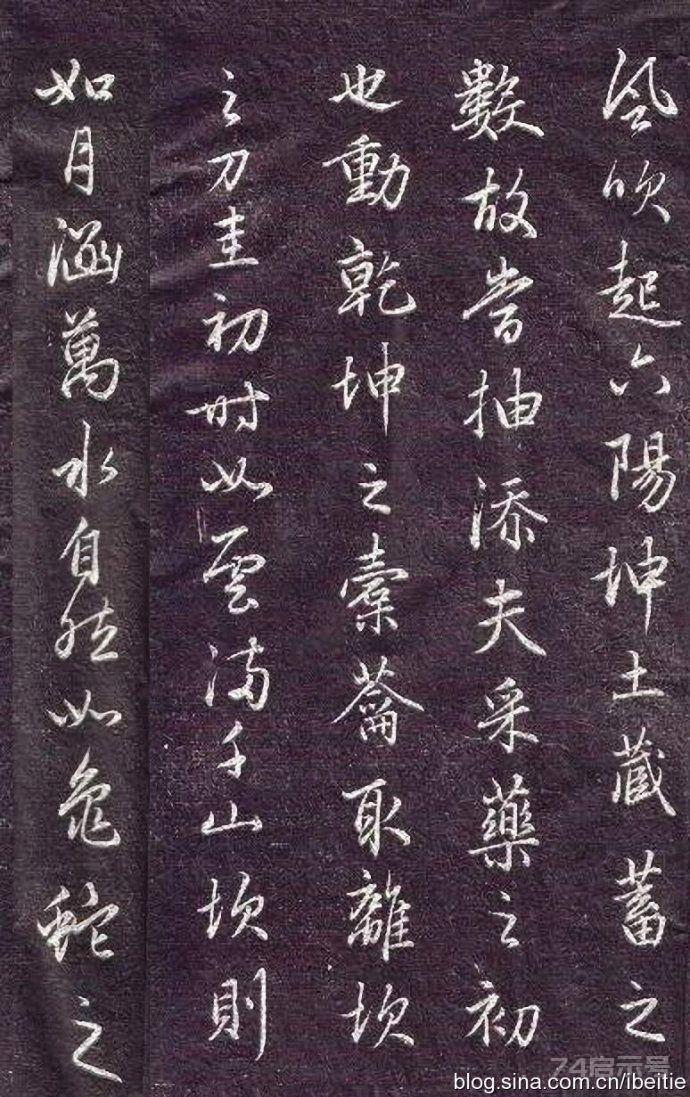 風吹起六陽坤土藏蓄之
數故嘗抽添夫采藥之初
也動乾坤之橐蘥取離坎
之刀圭初时如雲满千山坎則
如月涵萬水自然如龜蛇之
74启示号
blog.sina.com.cn/lbeitie